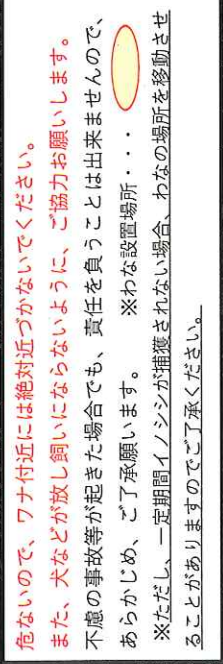 危ないので、ワナ付近には絶対近づかないでください。
また、犬などが放し飼いにならないように、ご協力お願いします。
不慮の事故等が起きた場合でも、責任を負うことは出来ませんので、
あらかじめ、ご了承願います。　※わな設置場所・・・
※ただし、一定期間イノシシが捕獲されない場合、わなの場所を移動させ
ることがありますのでご了承ください。